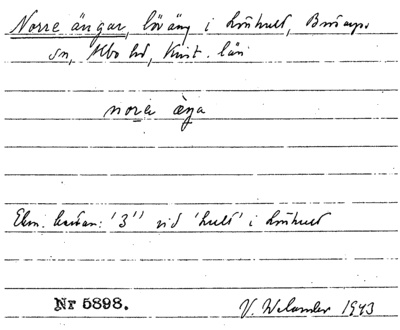 Norre ängar, löväng i Lönhult, Bringe
sn, Albo hd, Krist. län
nora äŋa
Ekon. kartan: '3' vid 'hult' i Lönhult
Nr 5898.
V. Welander 1943